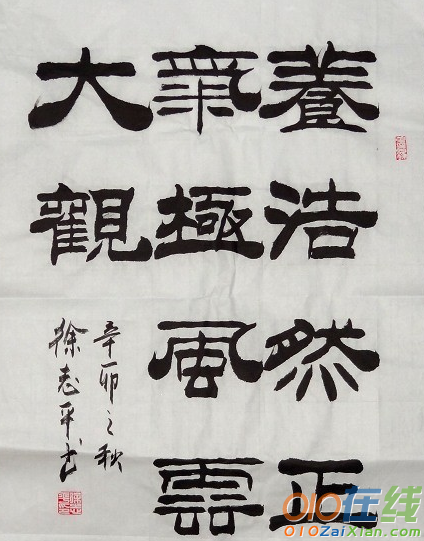 養浩然正
氣極風雲
大觀
辛卯之秋
徐志平书
010在线
010ZaiXian.com